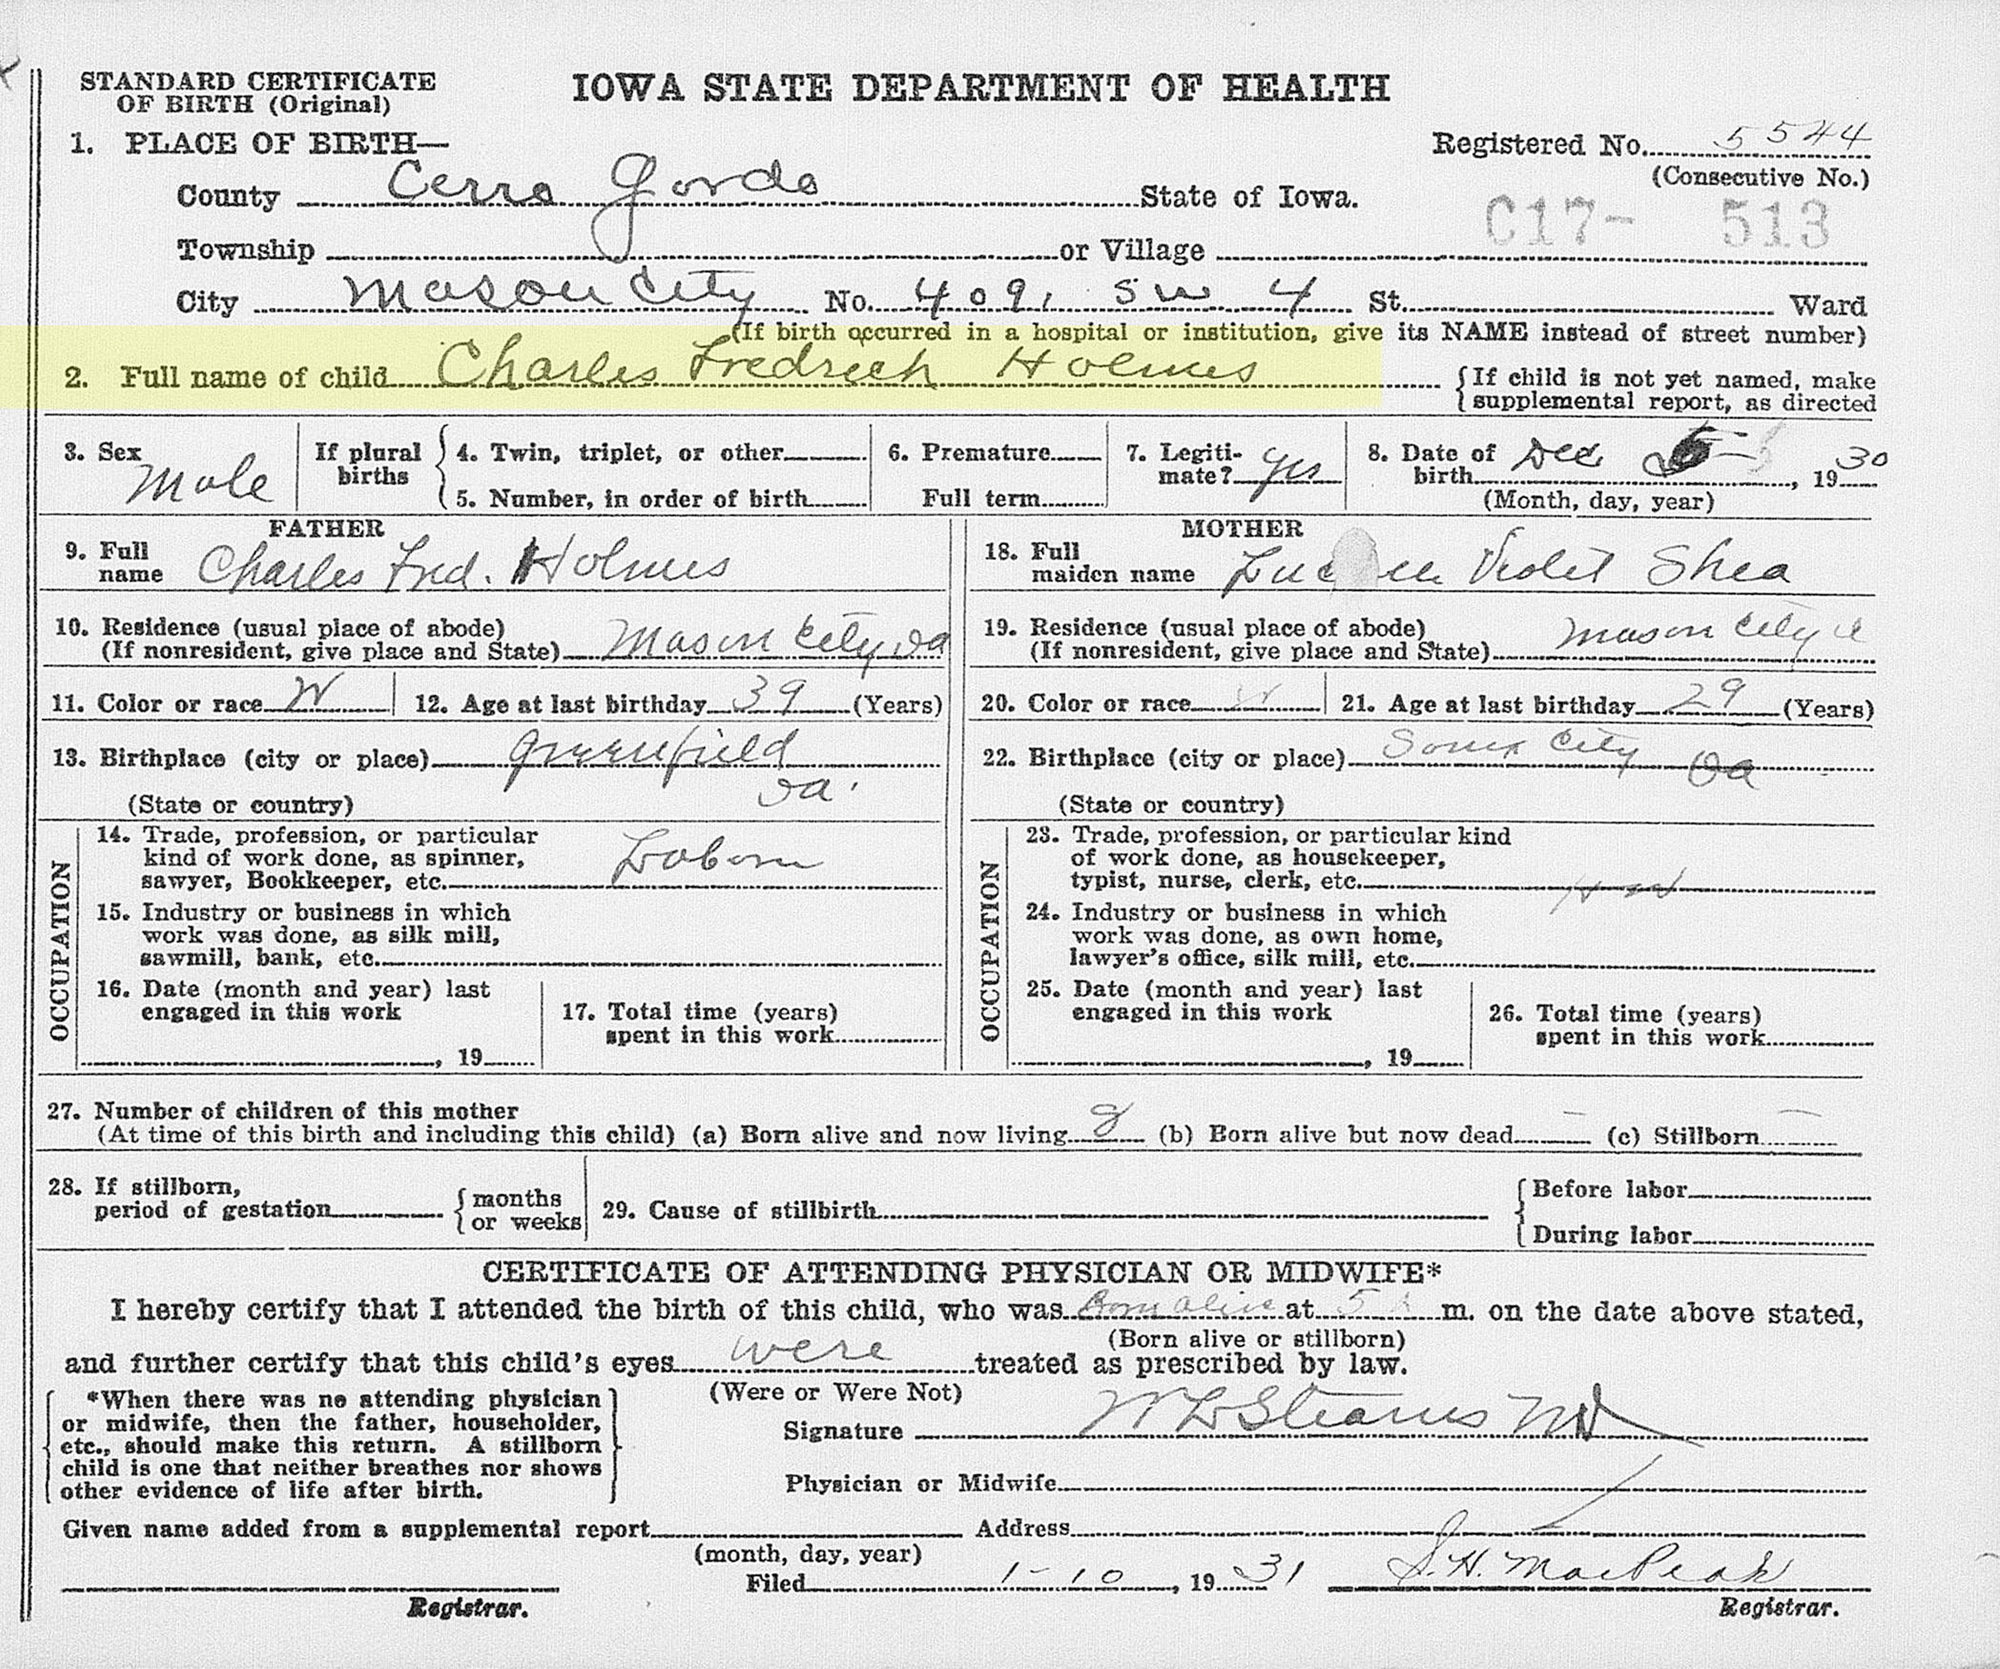 STANDARD CERTIFICATE
OF BIRTH (Original)
IOWA STATE DEPARTMENT OF HEALTH
1. PLACE OF BIRTH—
Registered No. 5544
(Consecutive No.)
County Cerro Gordo State of Iowa.
C17- 513
Township or Village
City Mason City No. 409, SW 4 St. Ward
(If birth occurred in a hospital or institution, give its NAME instead of street number)
2. Full name of child Charles Fredrich Holmes
{If child is not yet named, make
supplemental report, as directed
3. Sex Male
If plural births
4. Twin, triplet, or other
5. Number, in order of birth
6. Premature
Full term
7. Legiti-
mate? yes
8. Date of
birth Dec 5, 1930
(Month, day, year)
FATHER
9. Full
name Charles Fred. Holmes
10. Residence (usual place of abode)
(If nonresident, give place and State) Mason City Ia
11. Color or race W
12. Age at last birthday 39 (Years)
13. Birthplace (city or place) Greenfield
(State or country) Ia.
OCCUPATION
14. Trade, profession, or particular
kind of work done, as spinner,
sawyer, Bookkeeper, etc. Labor
15. Industry or business in which
work was done, as silk mill,
sawmill, bank, etc.
16. Date (month and year) last
engaged in this work
, 19
17. Total time (years)
spent in this work
MOTHER
18. Full
maiden name Violet Shea
19. Residence (usual place of abode)
(If nonresident, give place and State) Mason City
20. Color or race W
21. Age at last birthday 29 (Years)
22. Birthplace (city or place) Soux City Ia
(State or country)
OCCUPATION
23. Trade, profession, or particular kind
of work done, as housekeeper,
typist, nurse, clerk, etc.
24. Industry or business in which
work was done, as own home,
lawyer's office, silk mill, etc.
25. Date (month and year) last
engaged in this work
, 19
26. Total time (years)
spent in this work
27. Number of children of this mother
(At time of this birth and including this child) (a) Born alive and now living (b) Born alive but now dead — (c) Stillborn —
28. If stillborn,
period of gestation {months
or weeks
29. Cause of stillbirth
{Before labor
During labor
CERTIFICATE OF ATTENDING PHYSICIAN OR MIDWIFE*
I hereby certify that I attended the birth of this child, who was Born alive at 5 m. on the date above stated,
(Born alive or stillborn)
and further certify that this child's eyes were treated as prescribed by law.
(Were or Were Not)
*When there was no attending physician
or midwife, then the father, householder,
etc., should make this return. A stillborn
child is one that neither breathes nor shows
other evidence of life after birth.
Signature W L Stearns MD
Physician or Midwife
Given name added from a supplemental report
(month, day, year)
Address
Filed 1-10, 1931 S. H. MacPeak
Registrar.
Registrar.